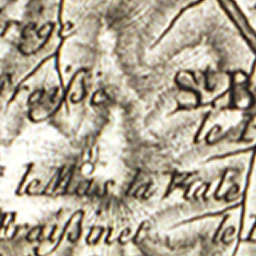 rege
fraissé
St. B
le
le Mas la Viale
Fraissinet
le